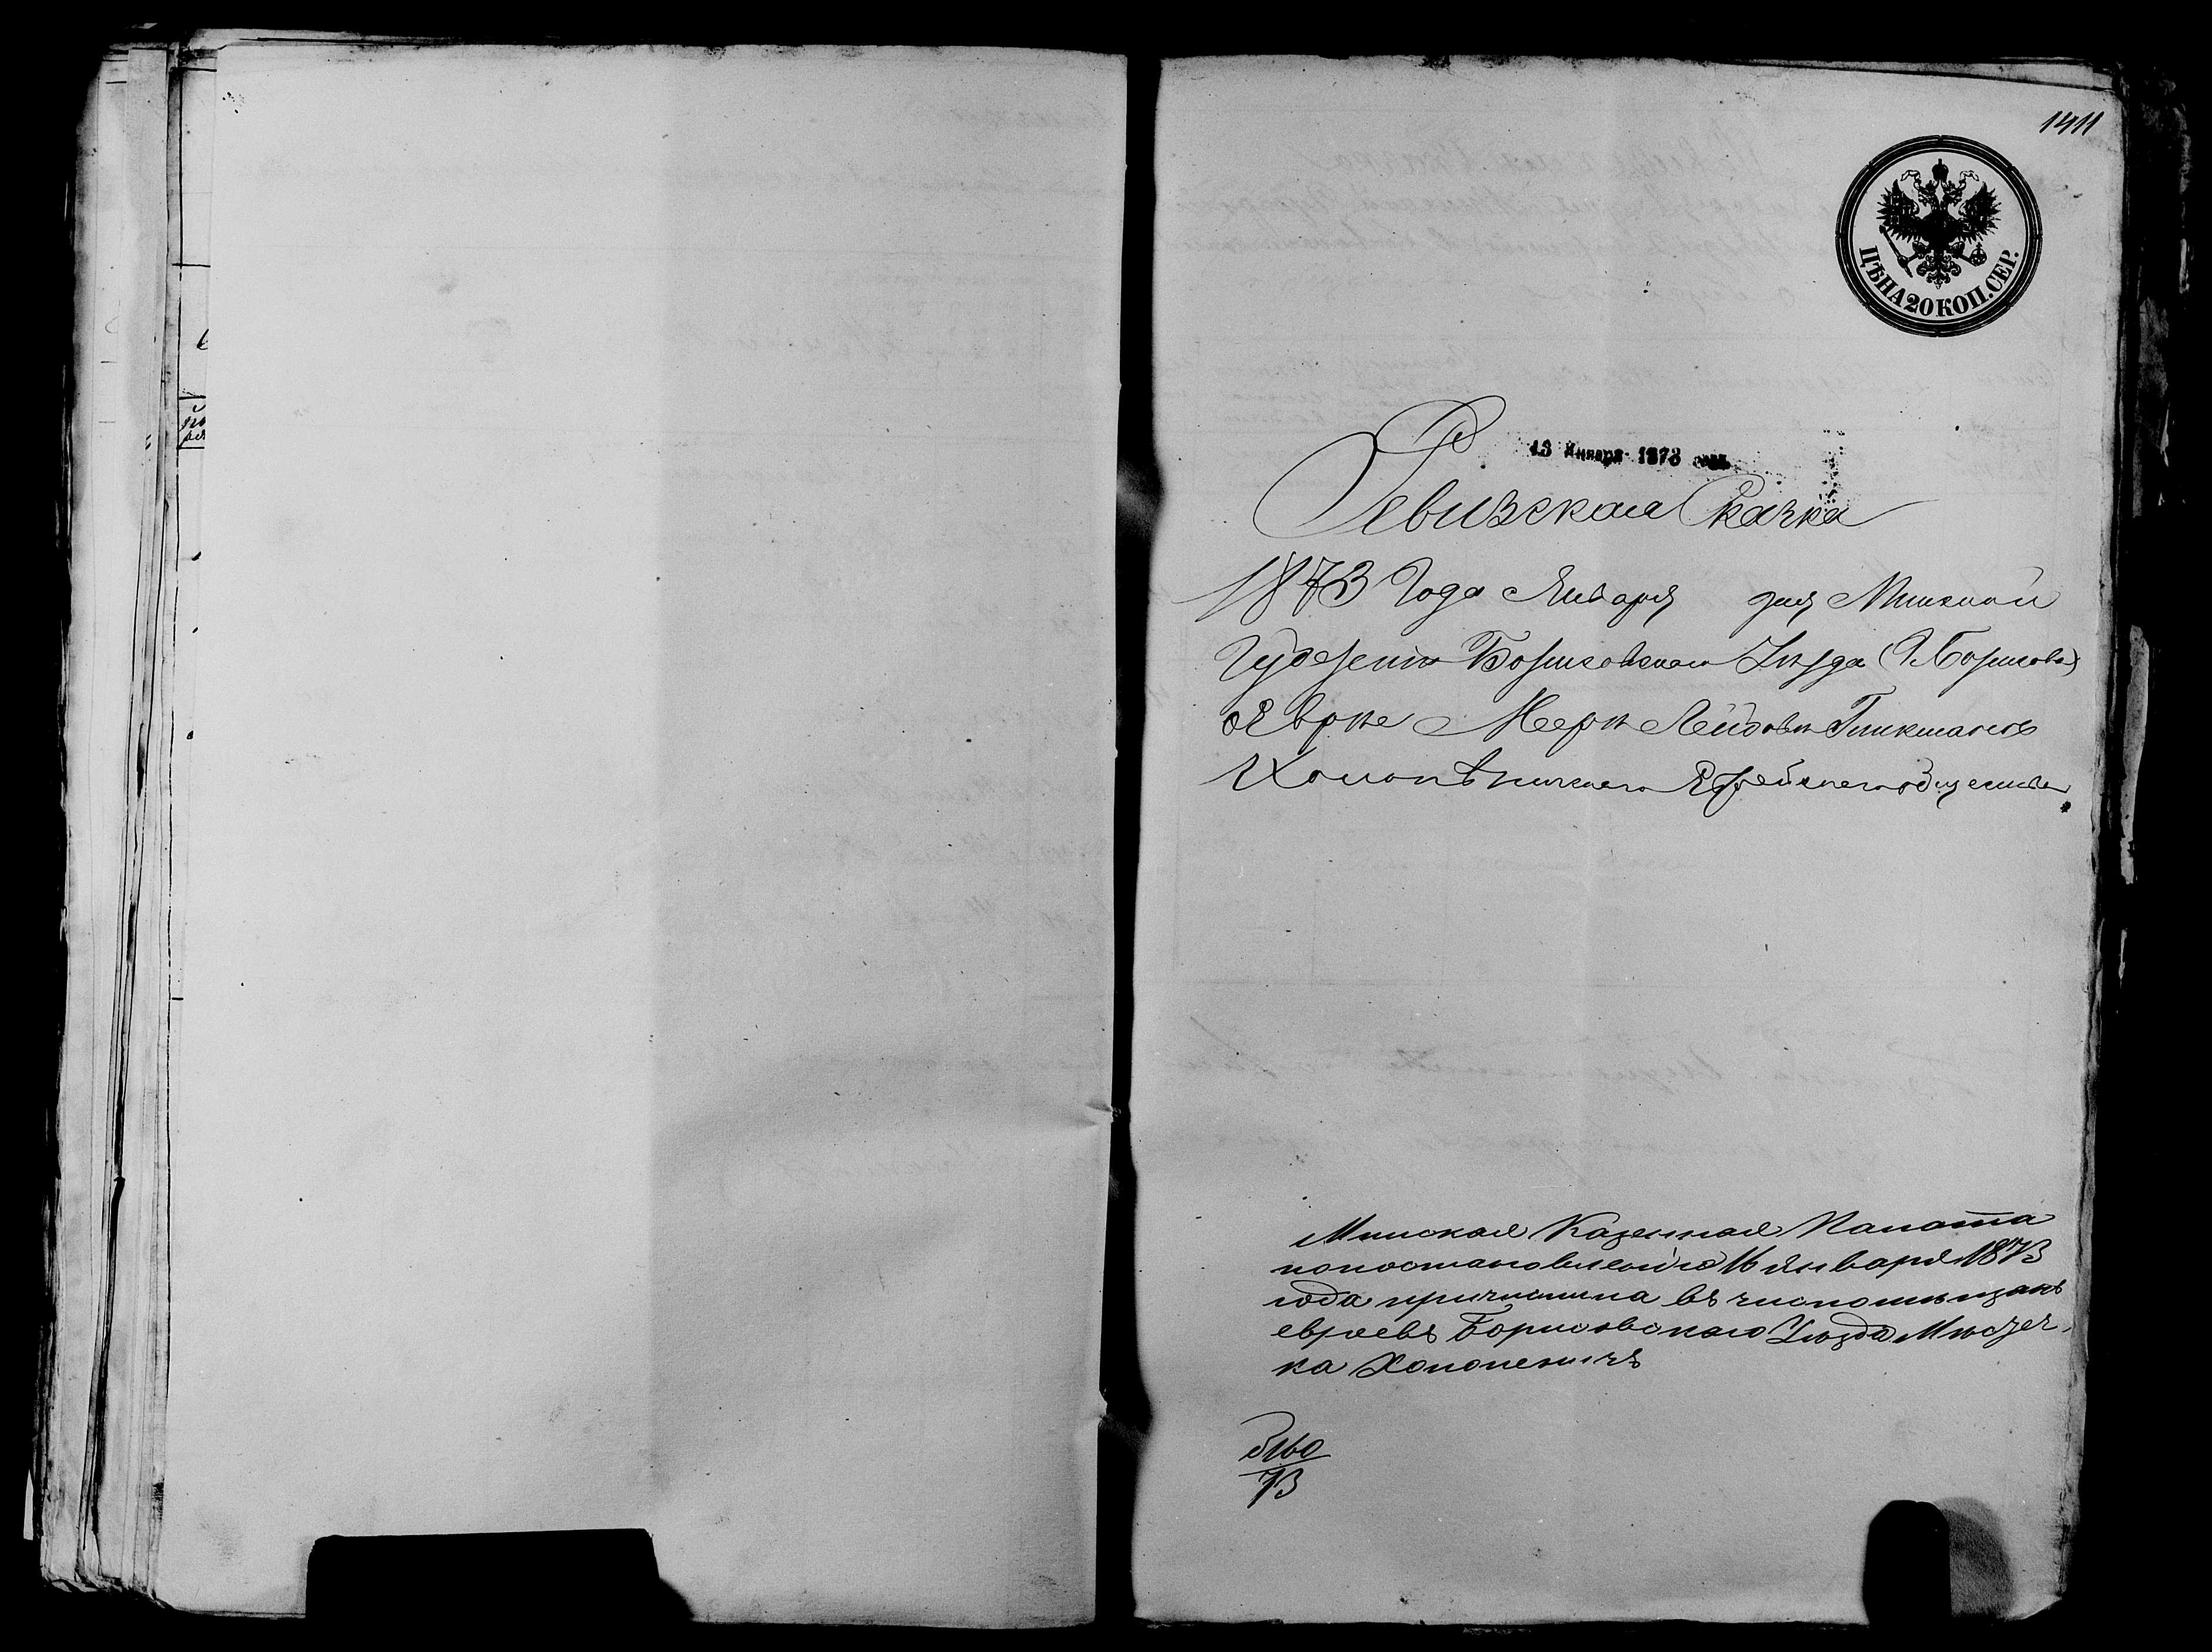 1411
ЦѢНА 20 КОП. СЕР.
13 Января 1873
Ревизская Сказка
1873 Года Января дня Минской
Губерніи Борисовскаго Уѣзда (Г. Борисова)
о Еврее Мерѣ Лейбовѣ Гликманѣ
Холопѣничскаго Еврейскаго общества
Минская Казенная Палата
по постановленію 16 Января 1873
года причислила въ число мѣщанъ
евреевъ Борисовскаго Уѣзда Мѣстеч-
ка Холопеничъ
5160
73